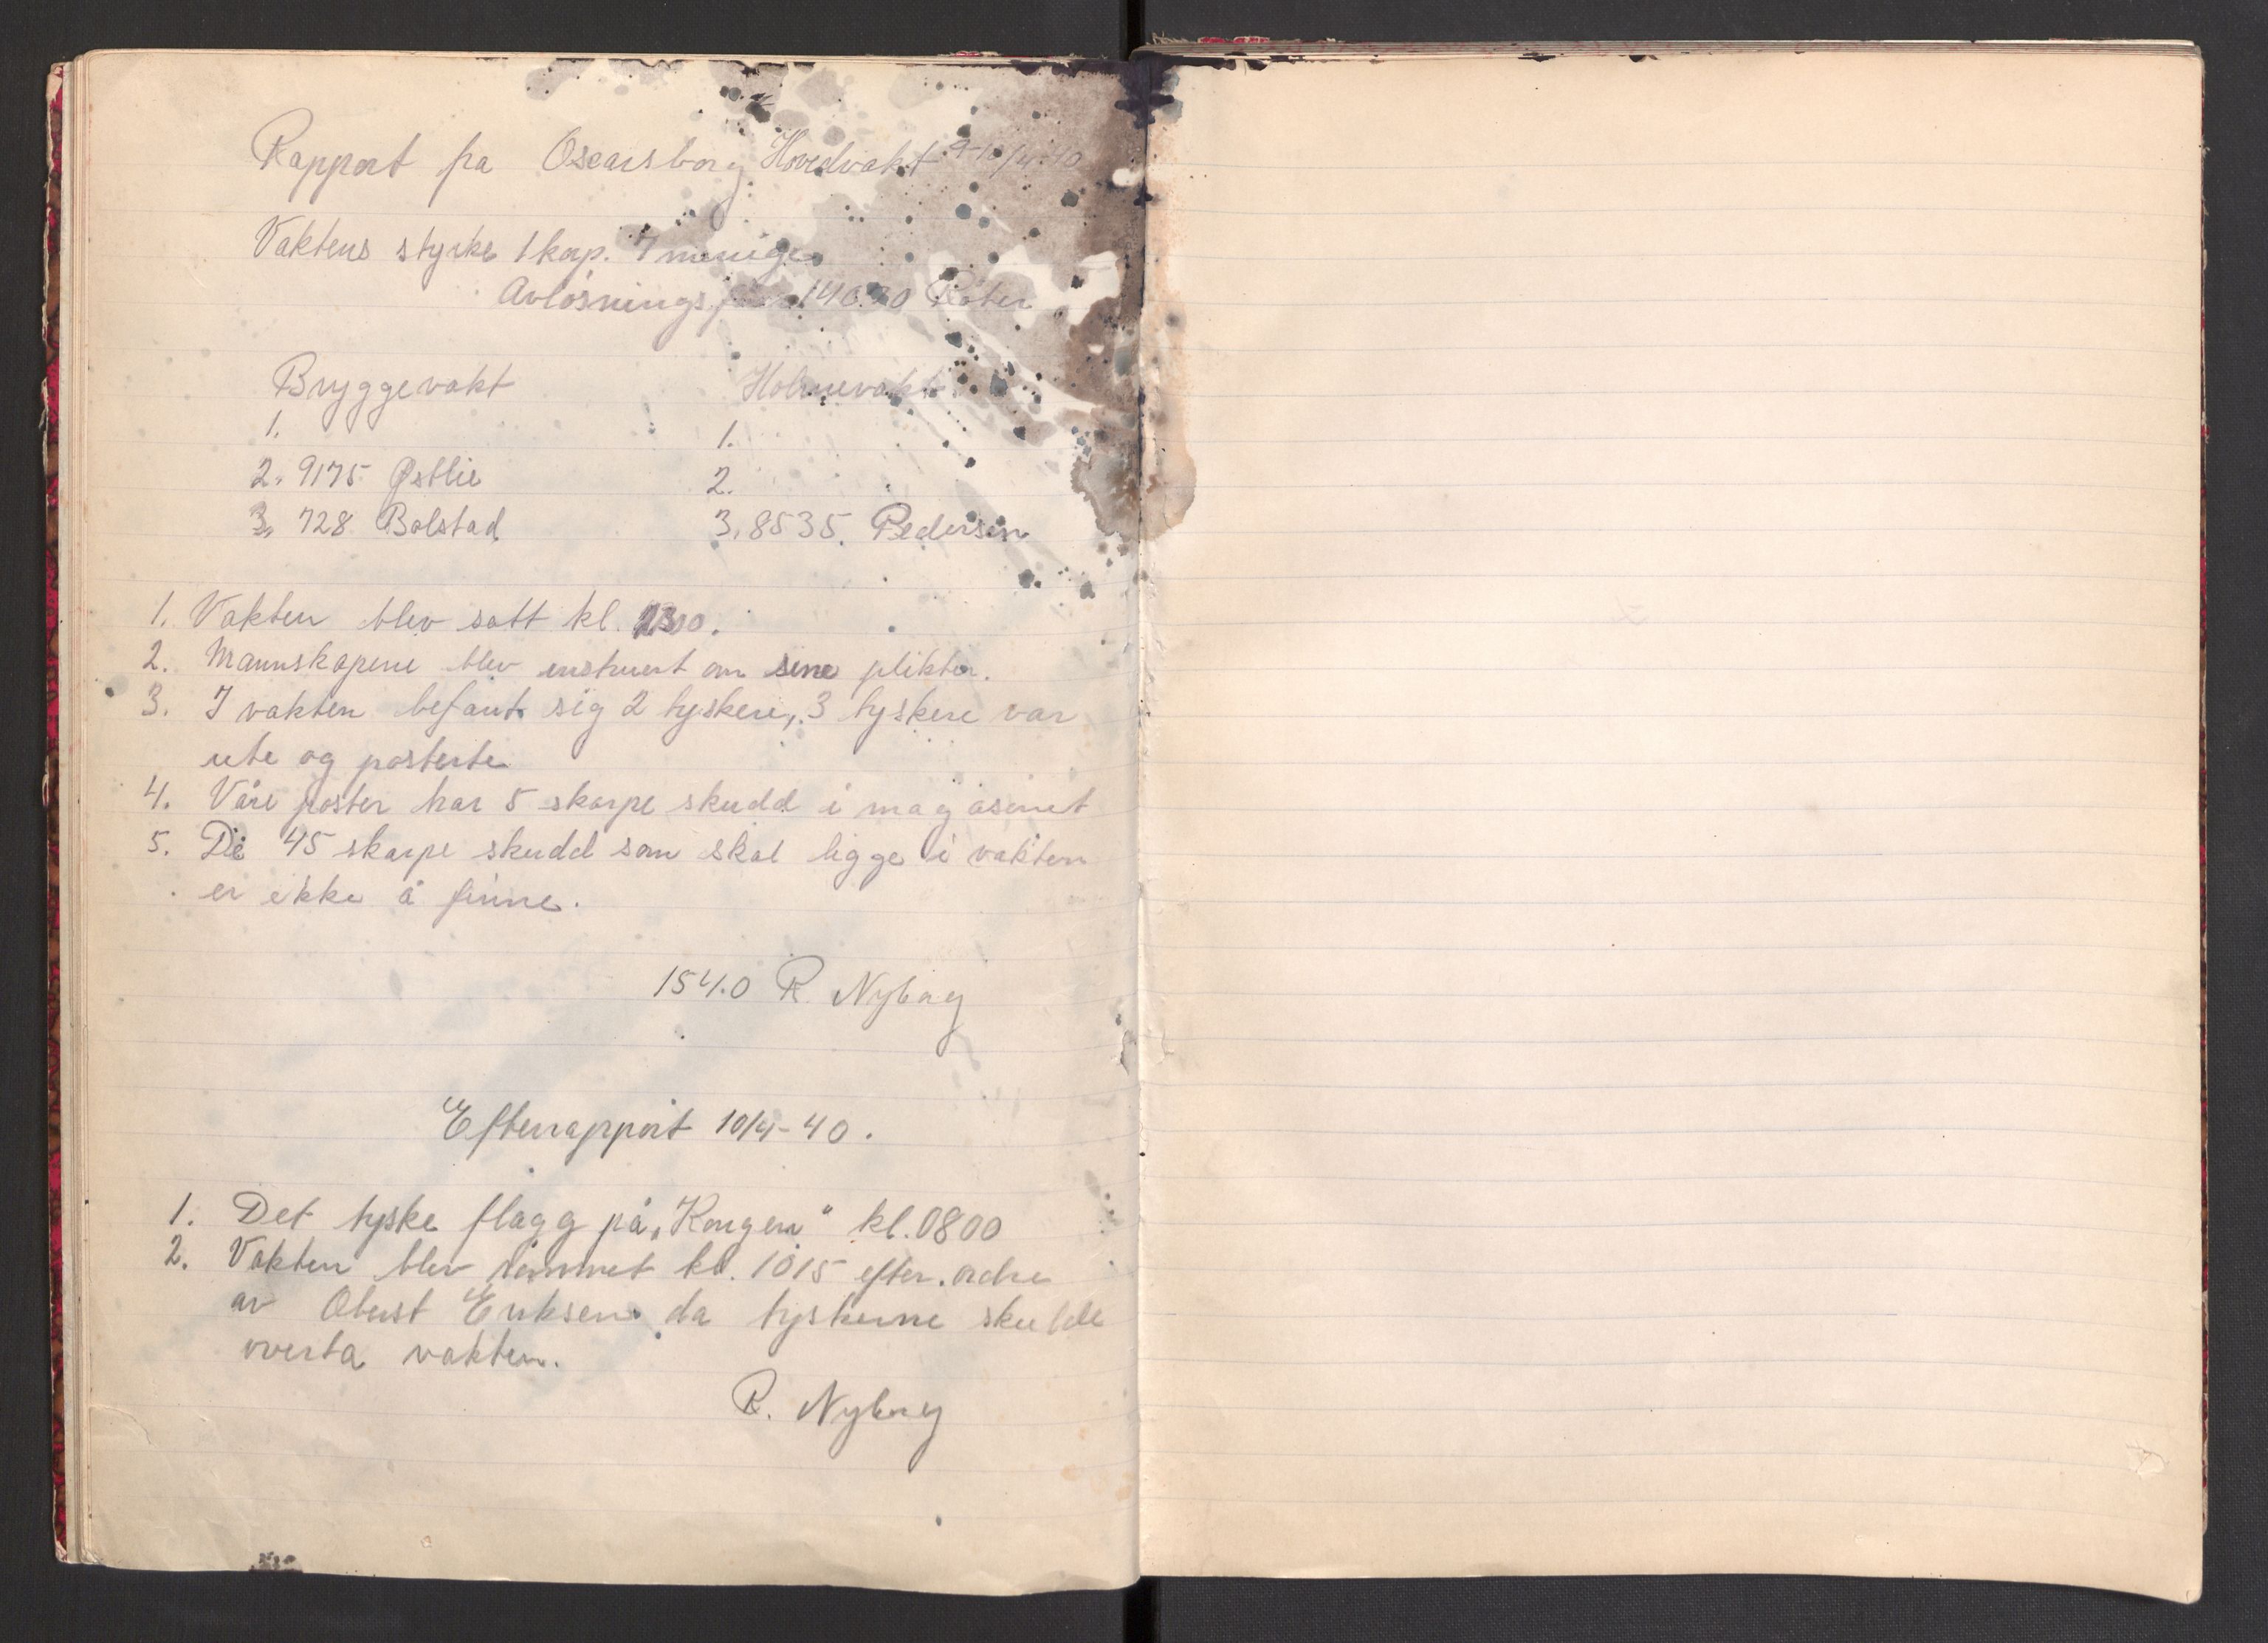 Rapport fra Oscarsborg Hovedvakt 9-10/4-40
Vaktens styrke 1 korp. 7 menige
Avløsnings 14030
Bryggevakt Holmevakt
1. 1.
2. 9175 Østlie 2.
3. 728 Bolstad 3. 8535. Pedersen
1. Vakten blev satt kl. 1300.
2. Mannskapene blev instruert om sine plikter.
3. I vakten befant sig 2 tyskere, 3 tyskere var
ute og posterte
4. Våre poster har 5 skarpe skudd i magasinet
5. De 45 skarpe skudd som skal ligge i vakten
er ikke å finne.
1540 R. Nyborg
Efterrapport 10/4-40.
1. Det tyske flagg på „Kongen" kl. 0800
2. Vakten blev rømmet kl. 1015 efter ordre
av Oberst Eriksen da tyskerne skulde
overta vakten.
R. Nyborg